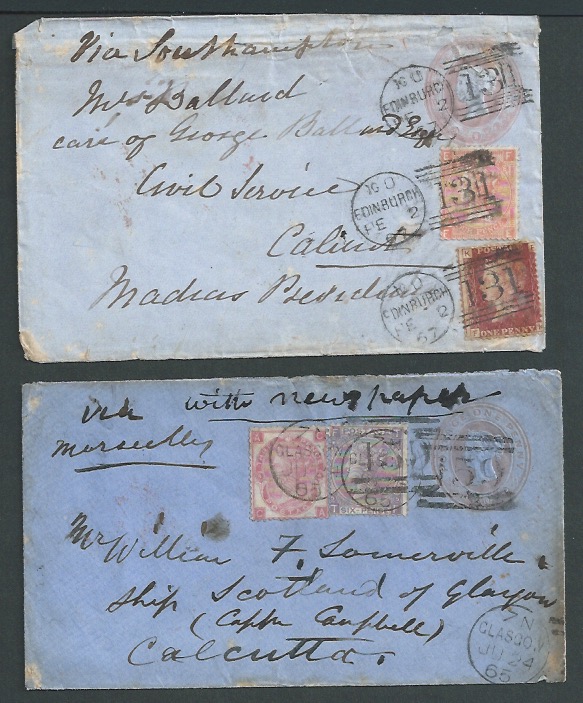 Via Southampton
Mrs Ballard
care of George Ballard Esqr
Civil Service
Calicut
Madras Presidency
EDINBURGH
2
67
131
EDINBURGH
2
67
131
F
E
EDINBURGH
2
67
131
K
ONE PENNY
via with newspaper
marseilles
GLASGOW
65
SIX PENCE
ONE PENNY
Mr William F. Somerville
Ship Scotland of Glasgow
(Captn Campbell)
Calcutta.
GLASGOW
24
65